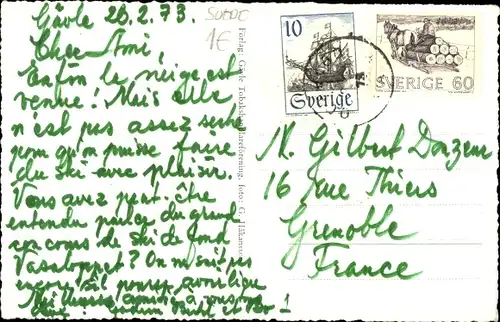 Gävle 20.2.73.
SUEDE
1€
Cher Ami,
Enfin la neige est
venue! Mais elle
n'est pas assez sèche
pour qu'on puisse faire
du ski avec plaisir.
Vous avez peut-être
entendu parler du grand
concours de ski de fond
Vasaloppet? On ne sait pas
encore s'il pourra avoir lieu
Förlag: Gävle Tobakshandlareförening, foto: G.
10
Sverige
SVERIGE 60
M. Gilbert Donzeau
16 rue Thiers
Grenoble
France